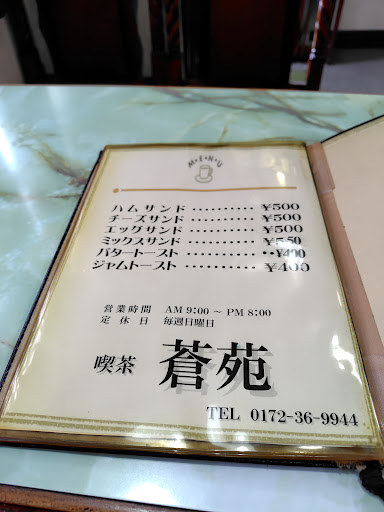 M·E·N·U
ハムサンド ・・・・・・・・・・ ¥500
チーズサンド ・・・・・・・・・・ ¥500
エッグサンド ・・・・・・・・・・ ¥500
ミックスサンド ・・・・・・・・ ¥550
バタートースト ・・・・・・・・ ¥400
ジャムトースト ・・・・・・・・ ¥400
営業時間 AM 9:00 ~ PM 8:00
定休日 毎週日曜日
喫茶 蒼苑
TEL 0172-36-9944